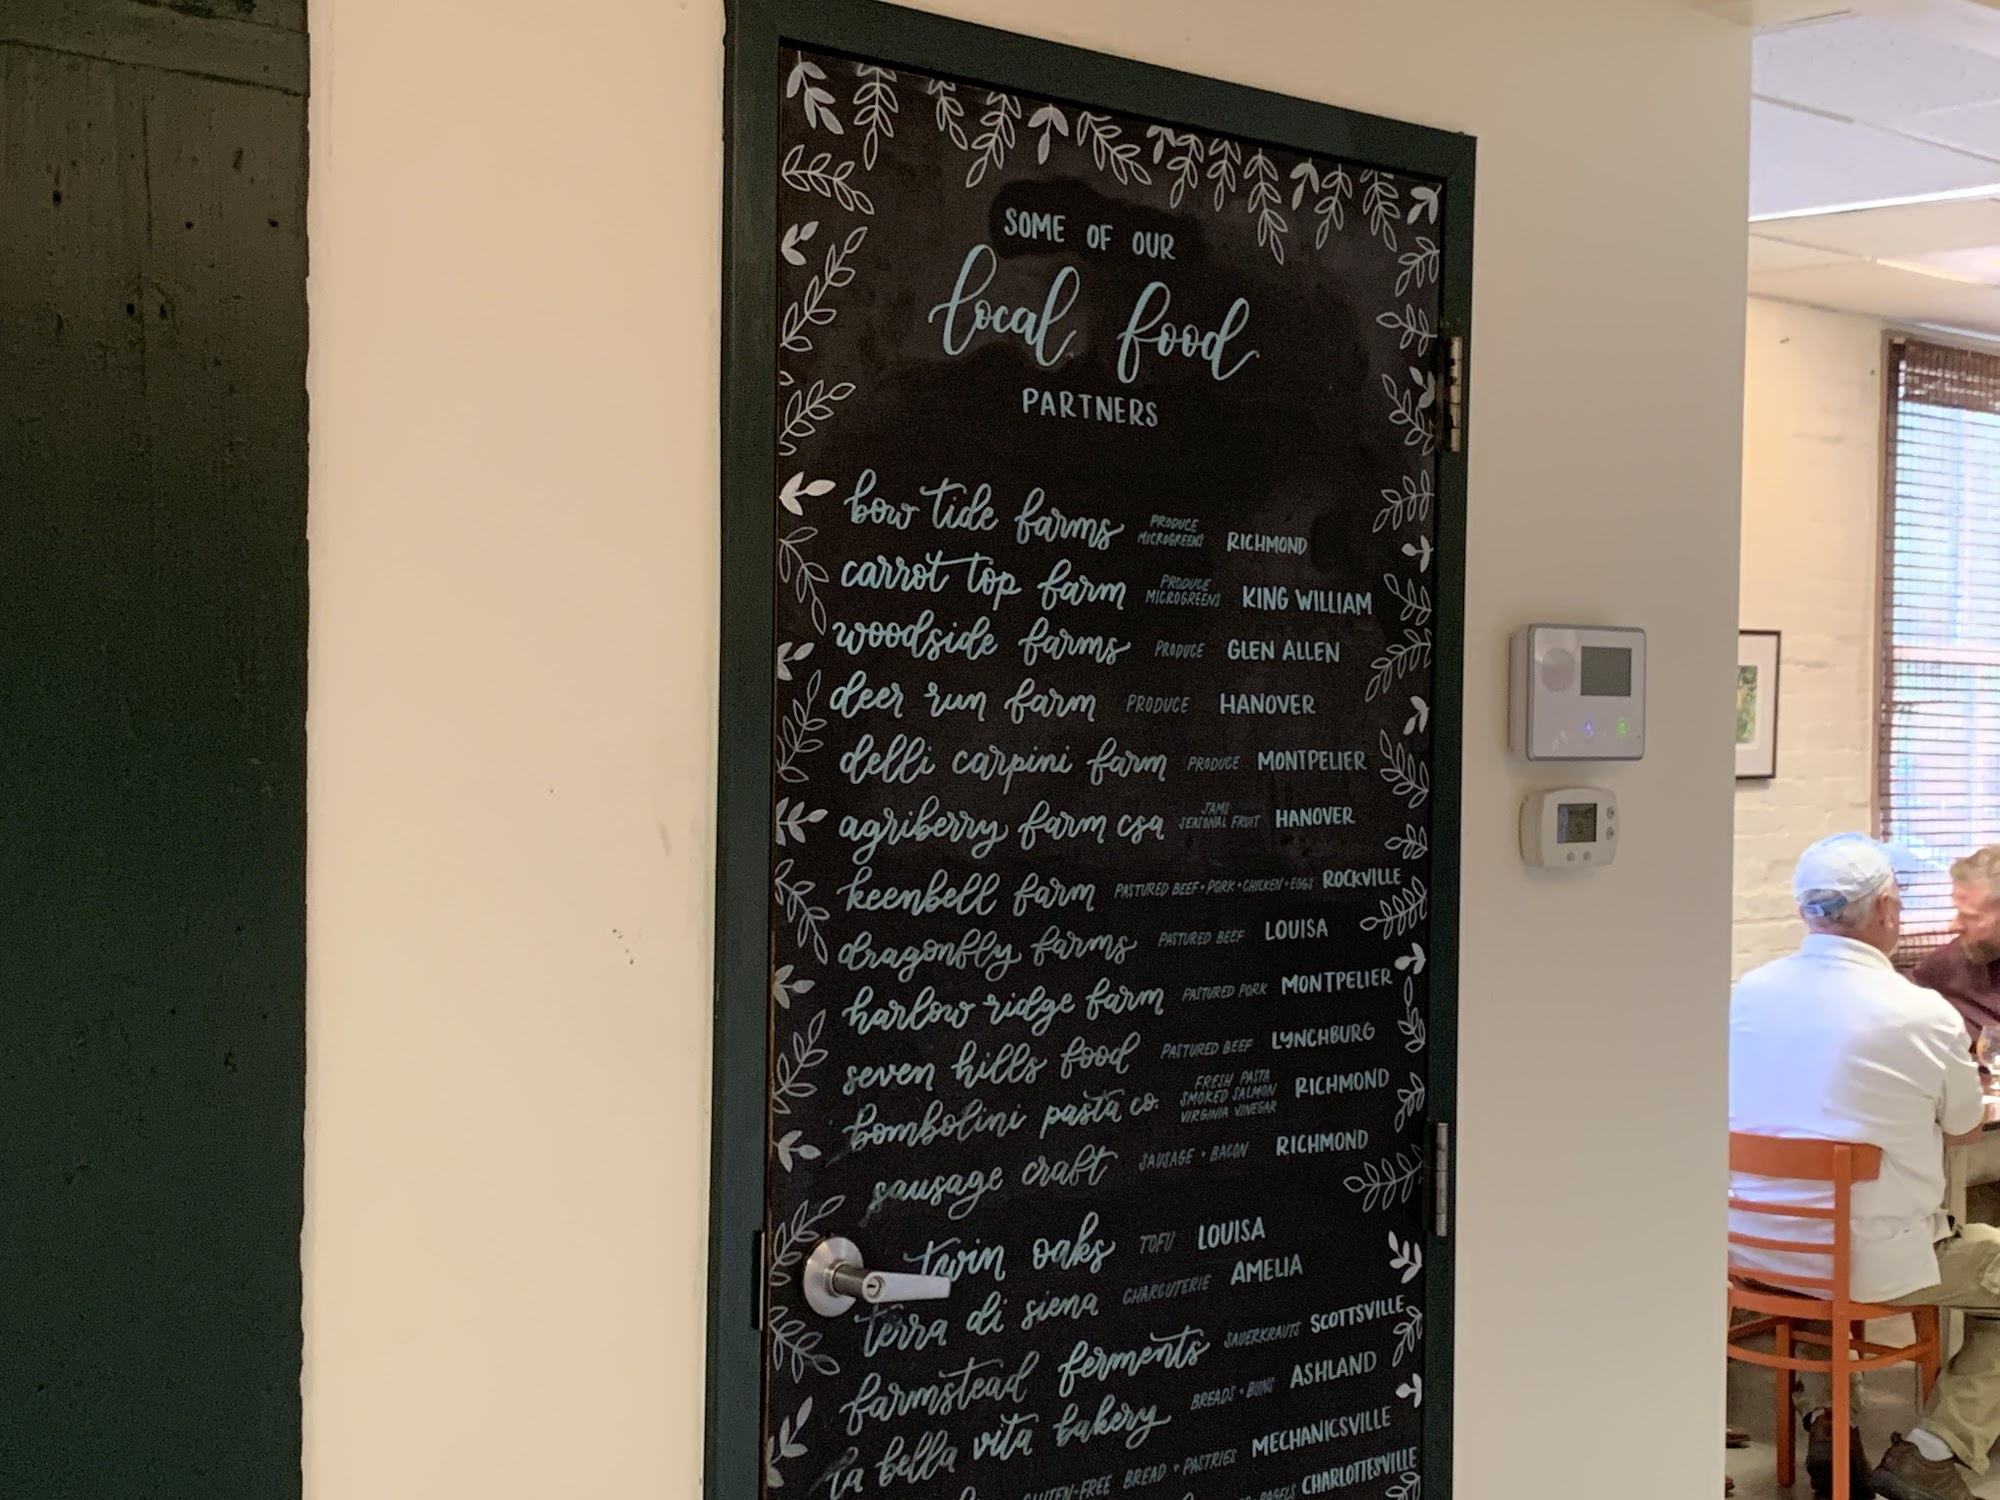 SOME OF OUR
local food
PARTNERS
bow tide farms PRODUCE MICROGREENS RICHMOND
carrot top farm PRODUCE MICROGREENS KING WILLIAM
woodside farms PRODUCE GLEN ALLEN
deer run farm PRODUCE HANOVER
delli carpini farm PRODUCE MONTPELIER
agriberry farm csa JAMS SEASONAL FRUIT HANOVER
keenbell farm PASTURED BEEF • PORK • CHICKEN • EGGS ROCKVILLE
dragonfly farms PASTURED BEEF LOUISA
harlow ridge farm PASTURED PORK MONTPELIER
seven hills food PASTURED BEEF LYNCHBURG
bombolini pasta co. FRESH PASTA SMOKED SALMON VIRGINIA VINEGAR RICHMOND
sausage craft SAUSAGE • BACON RICHMOND
twin oaks TOFU LOUISA
terra di siena CHARCUTERIE AMELIA
farmstead ferments SAUERKRAUTS SCOTTSVILLE
la bella vita bakery BREADS • BUNS ASHLAND
GLUTEN-FREE BREAD + PASTRIES MECHANICSVILLE
BAGELS CHARLOTTESVILLE